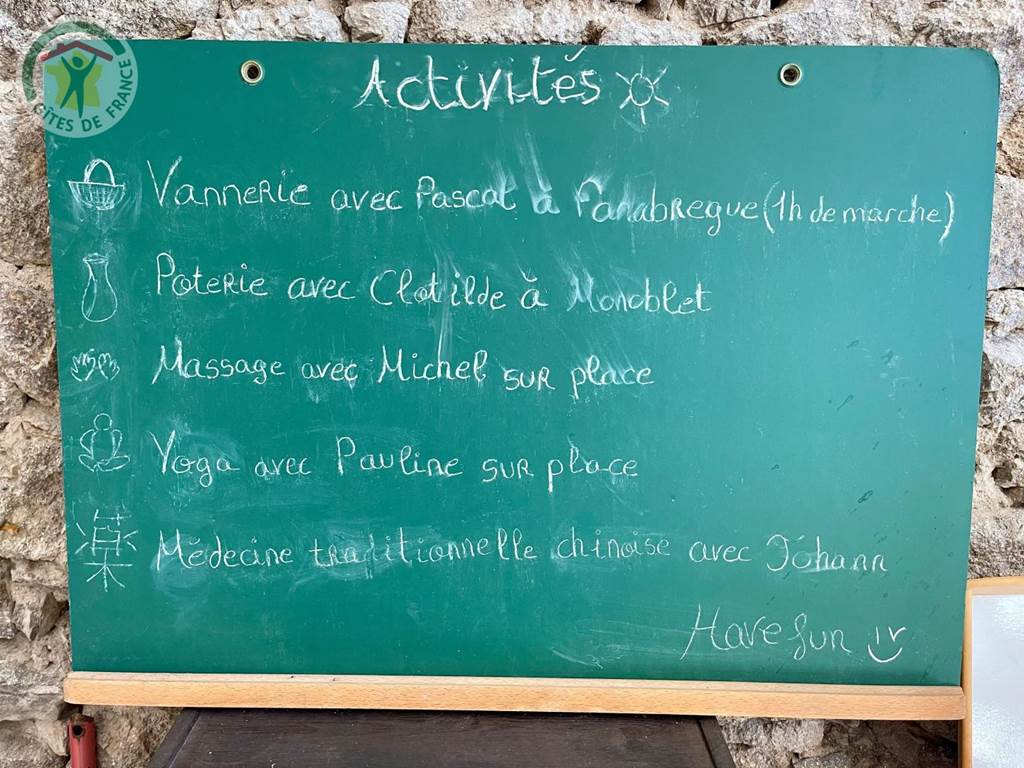 GÎTES DE FRANCE
Activités
Vannerie avec Pascal à Fanabregue (1h de marche)
Poterie avec Clotilde à Monoblet
Massage avec Michel sur place
Yoga avec Pauline sur place
藥 Médecine traditionnelle chinoise avec Johann
Have fun